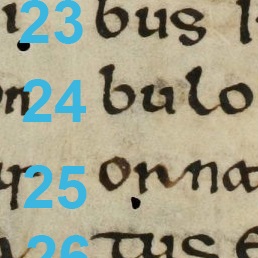 23 bus
24 bulo
25 onna
26 tus